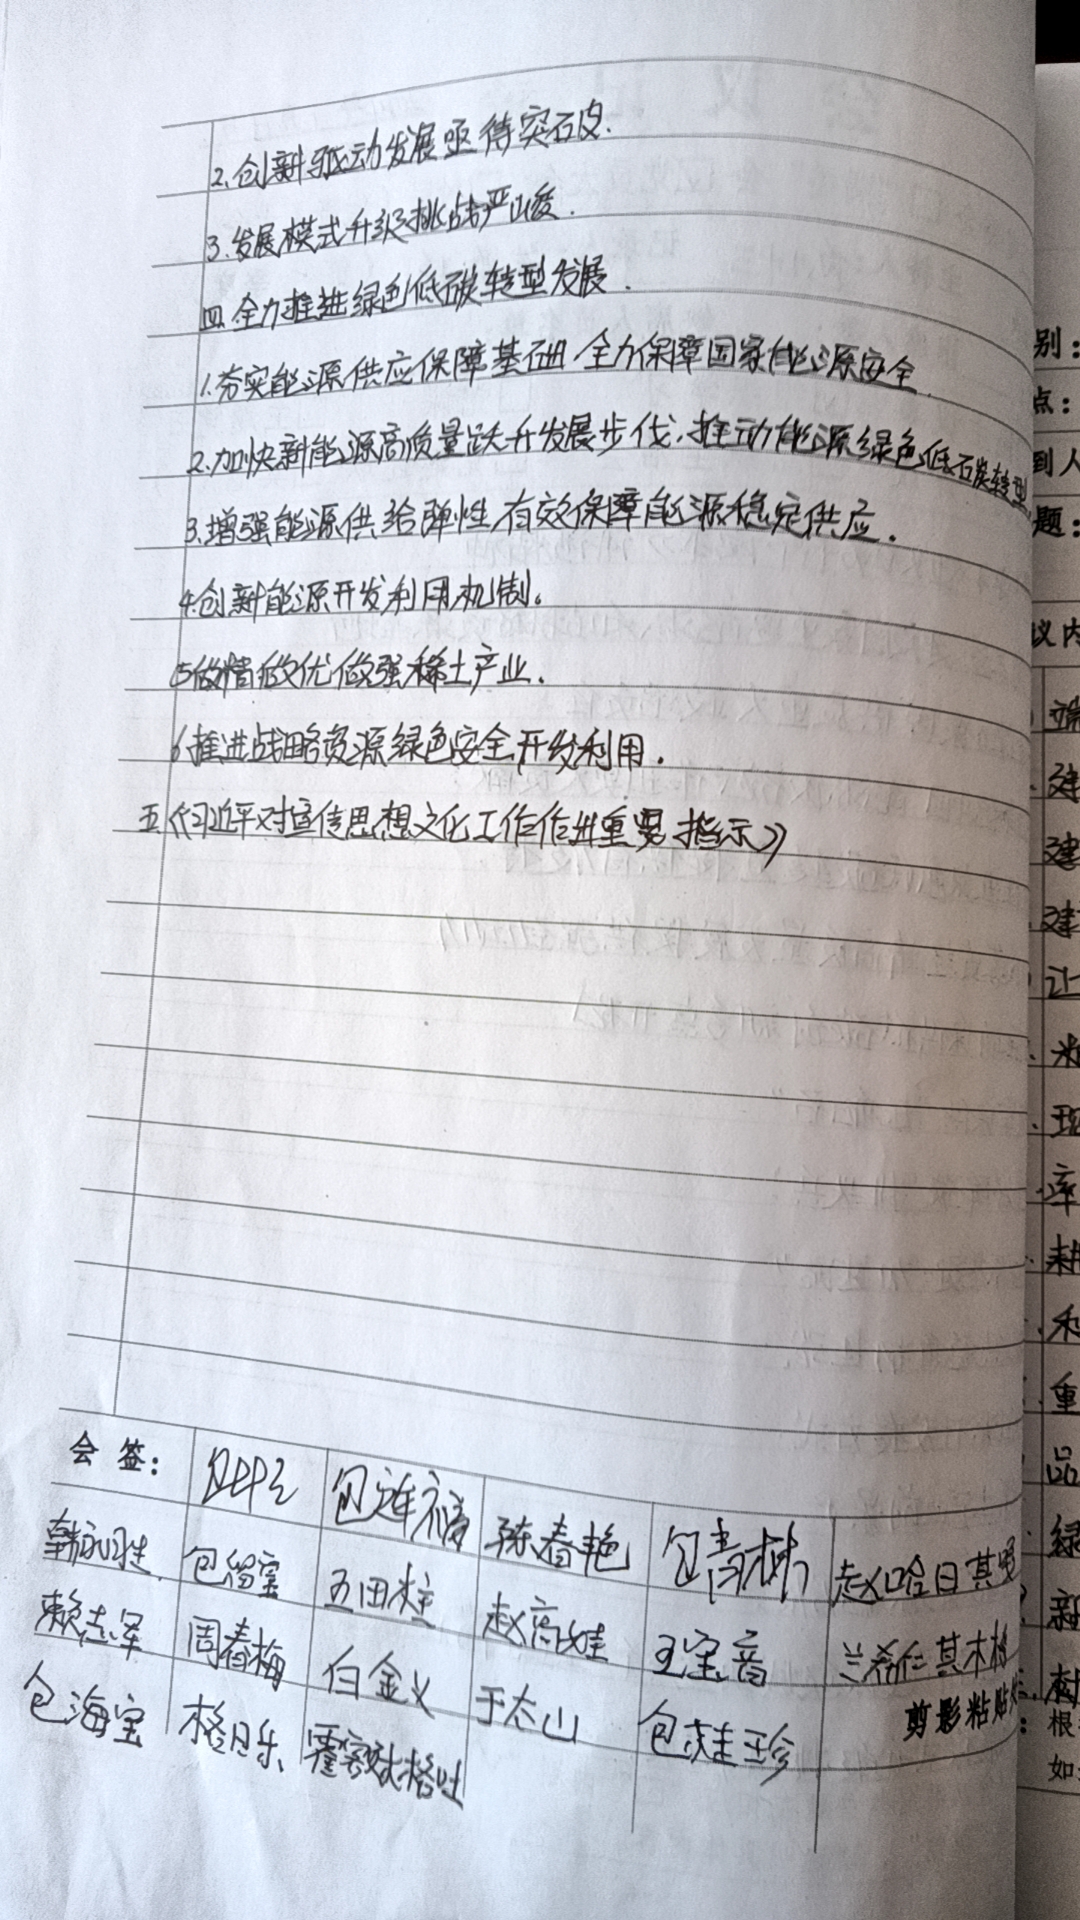 2.创新驱动发展亟待突破.
3.发展模式升级挑战严峻.
四.全力推进绿色低碳转型发展.
1.夯实能源供应保障基础.全力保障国家能源安全.
2.加快新能源高质量跃升发展步伐,推动能源绿色低碳转型
3.增强能源供给弹性,有效保障能源稳定供应.
4.创新能源开发利用机制。
5做精做优做强稀土产业.
6推进战略资源绿色安全开发利用.
五《习近平对宣传思想文化工作作出重要指示》
会 签:
包连福 陈春艳 包青林 赵哈日其嘎
包留宝 五田柱 赵高娃 王宝音 兰希仁其木格
赖志军 周春梅 白金义 于太山 包桂珍
包海宝 格日乐
剪影粘贴
别:
点:
到人
题:
议内
建
建
建
让
米
现
率
耕
利
重
品
绿
新
树
: 根
如